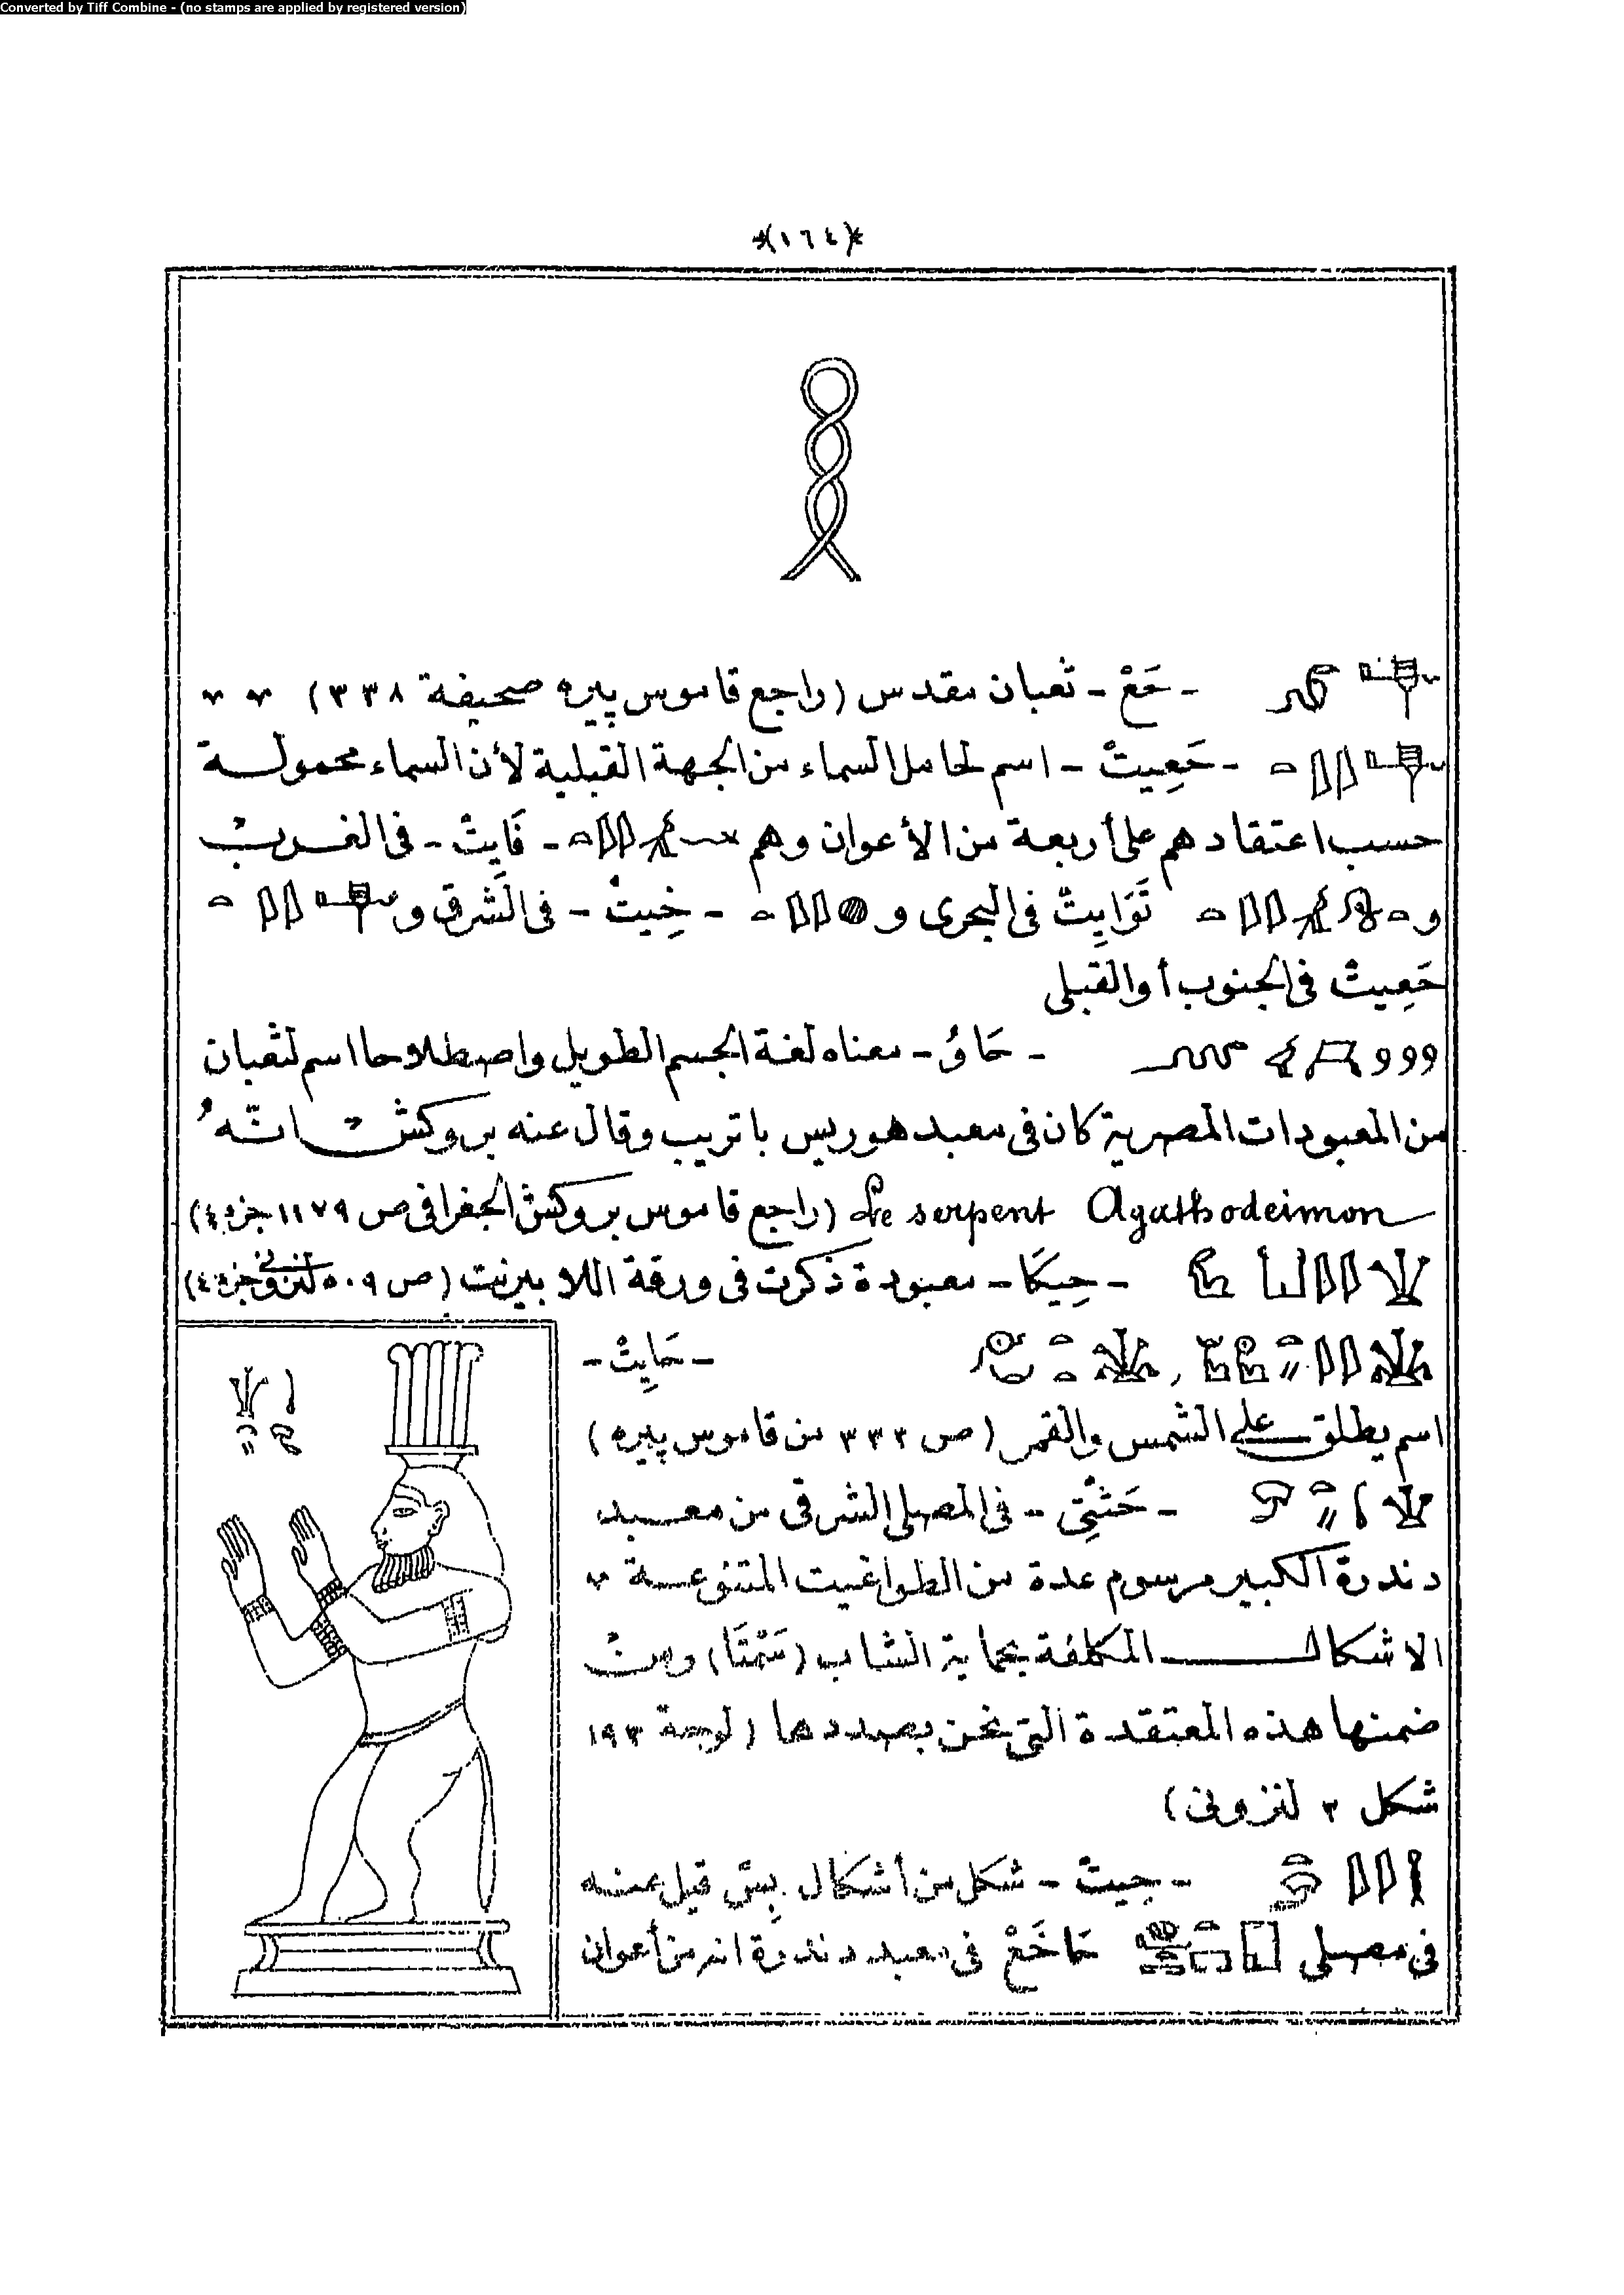 Converted by Tiff Combine - (no stamps are applied by registered version)
*(١٦٤)*
- حَعْ - ثعبان مقدس (راجع قاموس پيره صحيفة ٣٣٨)
- حَعِيتْ - اسم لحامل السماء من الجهة القبلية لأن السماء محمولة
حسب اعتقادهم على أربعة من الأعوان وهم - فَايِتْ - فى الغرب
و تَوَايِتْ فى البحرى و - خِيتْ - فى الشرق و
حَعِيتْ فى الجنوب أو القبلى
- حَاوُ - معناه لغة الجسم الطويل واصطلاحا اسم لثعبان
من المعبودات المصرية كان فى معبد هوريس باتريب وقال عنه بروكش انّهُ
Le serpent Agathodeimon (راجع قاموس بروكش الجغرافى ص ١١٧٩ جزء ٤)
- حِيكَا - معبودة ذكرت فى ورقة اللابيرنت (ص ٥٠٩ لنزونى جزء ٤)
- حَايِتْ -
اسم يطلق على الشمس والقمر (ص ٣٣٢ من قاموس پيره)
- حَتْتِى - فى المصلى الشرقى من معبد
دندرة الكبير مرسوم عدة من الطواغيت المتنوعة
الاشكال المكلفة بحماية الشاب (سَمْتَا) ومن
ضمنها هذه المعتقدة التى نحن بصددها (لوحة ١٩٣
شكل ٣ لنزونى)
- حِيتْ - شكل من أشكال بِسّ قيل عنه
فى مصلى حَاخَعْ فى معبد دندرة انه من أعوان